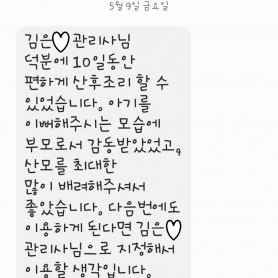 5월 9일 금요일
김은♡관리사님
덕분에 10일동안
편하게 산후조리 할 수
있었습니다. 아기를
이뻐해주시는 모습에
부모로서 감동받았었고,
산모를 최대한
많이 배려해주셔서
좋았습니다. 다음번에도
이용하게 된다면 김은♡
관리사님으로 지정해서
이용할 생각입니다.